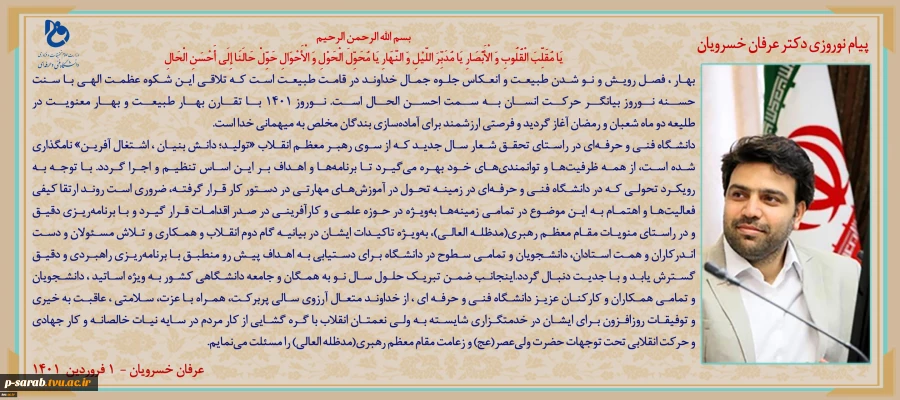 پیام نوروزی دکتر عرفان خسرویان
بسم الله الرحمن الرحیم
یَا مُقَلِّبَ الْقُلُوبِ وَ الْأَبْصَارِ یَا مُدَبِّرَ اللَّیْلِ وَ النَّهَارِ یَا مُحَوِّلَ الْحَوْلِ وَ الْأَحْوَالِ حَوِّلْ حَالَنَا إِلَی أَحْسَنِ الْحَالِ
بهار، فصل رویش و نو شدن طبیعت و انعکاس جلوه جمال خداوند در قامت طبیعت است که تلاقی این شکوه عظمت الهی با سنت
حسنه نوروز بیانگر حرکت انسان به سمت احسن الحال است. نوروز ۱۴۰۱ با تقارن بهار طبیعت و بهار معنویت در
طلیعه دو ماه شعبان و رمضان آغاز گردید و فرصتی ارزشمند برای آماده‌سازی بندگان مخلص به میهمانی خدا است.
دانشگاه فنی و حرفه‌ای در راستای تحقق شعار سال جدید که از سوی رهبر معظم انقلاب «تولید؛ دانش بنیان ، اشتغال آفرین» نامگذاری
شده است، از همه ظرفیت‌ها و توانمندی‌های خود بهره می‌گیرد تا برنامه‌ها و اهداف بر این اساس تنظیم و اجرا گردد. با توجه به
رویکرد تحولی که در دانشگاه فنی و حرفه‌ای در زمینه تحول در آموزش‌های مهارتی در دستور کار قرار گرفته، ضروری است روند ارتقا کیفی
فعالیت‌ها و اهتمام به این موضوع در تمامی زمینه‌ها به‌ویژه در حوزه علمی و کارآفرینی در صدر اقدامات قرار گیرد و با برنامه‌ریزی دقیق
و در راستای منویات مقام معظم رهبری(مدظله العالی)، به‌ویژه تاکیدات ایشان در بیانیه گام دوم انقلاب و همکاری و تلاش مسئولان و دست
اندرکاران و همت استادان، دانشجویان و تمامی سطوح در دانشگاه برای دستیابی به اهداف پیش رو منطبق با برنامه‌ریزی راهبردی و دقیق
گسترش یابد و با جدیت دنبال گردد.اینجانب ضمن تبریک حلول سال نو به همگان و جامعه دانشگاهی کشور به ویژه اساتید ، دانشجویان
و تمامی همکاران و کارکنان عزیز دانشگاه فنی و حرفه ای ، از خداوند متعال آرزوی سالی پربرکت، همراه با عزت، سلامتی ، عاقبت به خیری
و توفیقات روزافزون برای ایشان در خدمتگزاری شایسته به ولی نعمتان انقلاب با گره گشایی از کار مردم در سایه نیات خالصانه و کار جهادی
و حرکت انقلابی تحت توجهات حضرت ولی‌عصر(عج) و زعامت مقام معظم رهبری(مدظله العالی) را مسئلت می‌نمایم.
عرفان خسرویان - ۱ فروردین ۱۴۰۱
p-sarab.tvu.ac.ir